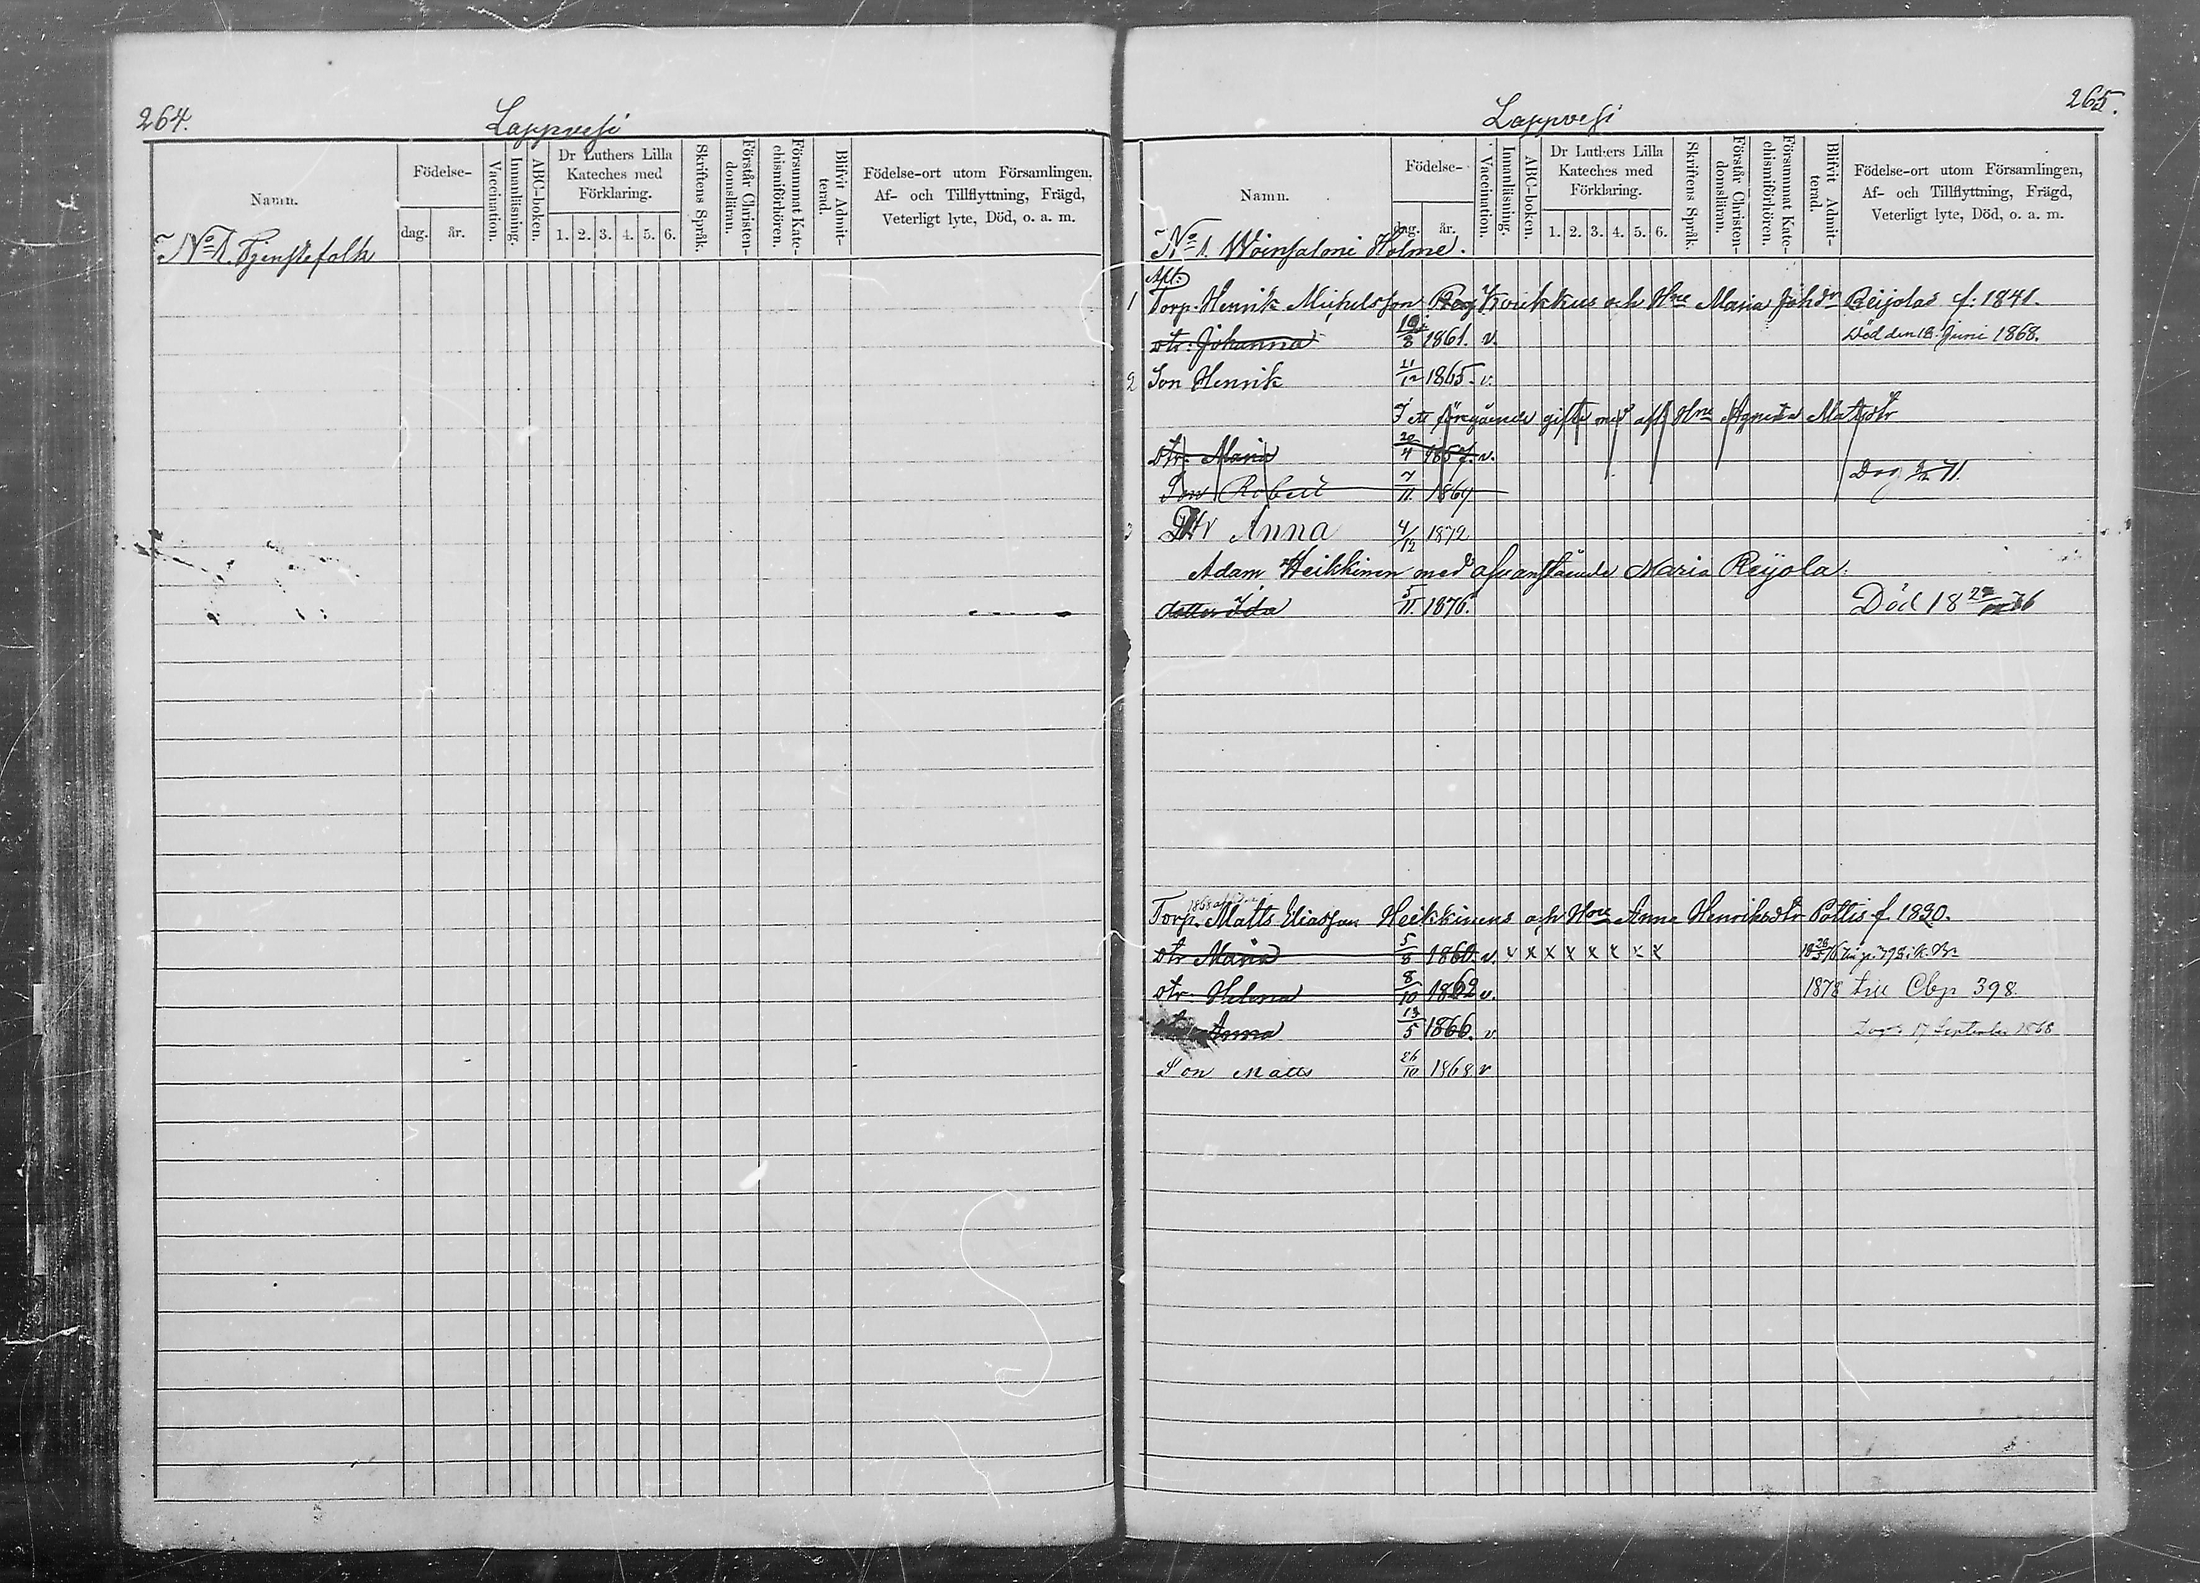 264.
Lappvesi
Namn.
Födelse-
dag.
år.
Vaccination.
Innanläsning.
ABC-boken.
Dr Luthers Lilla
Kateches med
Förklaring.
1. 2. 3. 4. 5. 6.
Skriftens Språk.
Förstår Christen-
domsläran.
Försummat Kate-
chismiförhören.
Blifvit Admit-
terad.
Födelse-ort utom Församlingen,
Af- och Tillflyttning, Frägd,
Veterligt lyte, Död, o. a. m.
No 1. Tjenstefolk
265.
Lappvesi
Namn.
Födelse-
dag.
år.
Vaccination.
Innanläsning.
ABC-boken.
Dr Luthers Lilla
Kateches med
Förklaring.
1. 2. 3. 4. 5. 6.
Skriftens Språk.
Förstår Christen-
domsläran.
Försummat Kate-
chismiförhören.
Blifvit Admit-
terad.
Födelse-ort utom Församlingen,
Af- och Tillflyttning, Frägd,
Veterligt lyte, Död, o. a. m.
No 1. Woinsalmi Holme.
Afl:
1 Torp. Henrik Michelsson Kovikkus och Hne Maria Johdr Reijolas f: 1841.
dtr: Johanna 1861. v. Död den 18 Juni 1868.
2 Son Henrik 21/12 1865. v.
I ett föregående gifte med afl Hne Agneta Matsdtr
dtr: Maria 20/4 1857. v.
Son Robert 7/11 1864
3 Dtr Anna 4/12 1872
Adam Heikkinen med ofvanstående Maria Reijola.
dotter Ida 5/11 1876. Död 18 76
Torp. Matts Eliasson Heikkinens och Hne Anna Henriksdtr Pöllis f. 1820.
dtr Maria 5/8 1860. v. x x x x x x x x
dtr: Helena 8/10 1862 v. 1878 till Cbp 398.
Anna 13/5 1866. v 17 September 1868
Son Matts 26/10 1868. v